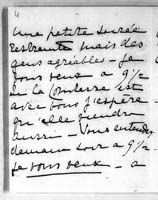 une petite soirée
restreinte mais des
gens agréables - je
vous veux a 9½
et la Comtesse est
avec vous j'espère
qu'elle viendra
aussi - Vous entendez,
demain soir a 9½ -
je vous veux - a